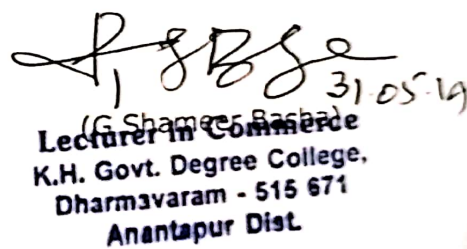 31.05.19
(G Shameer Basha)
Lecturer in Commerce
K.H. Govt. Degree College,
Dharmavaram - 515 671
Anantapur Dist.